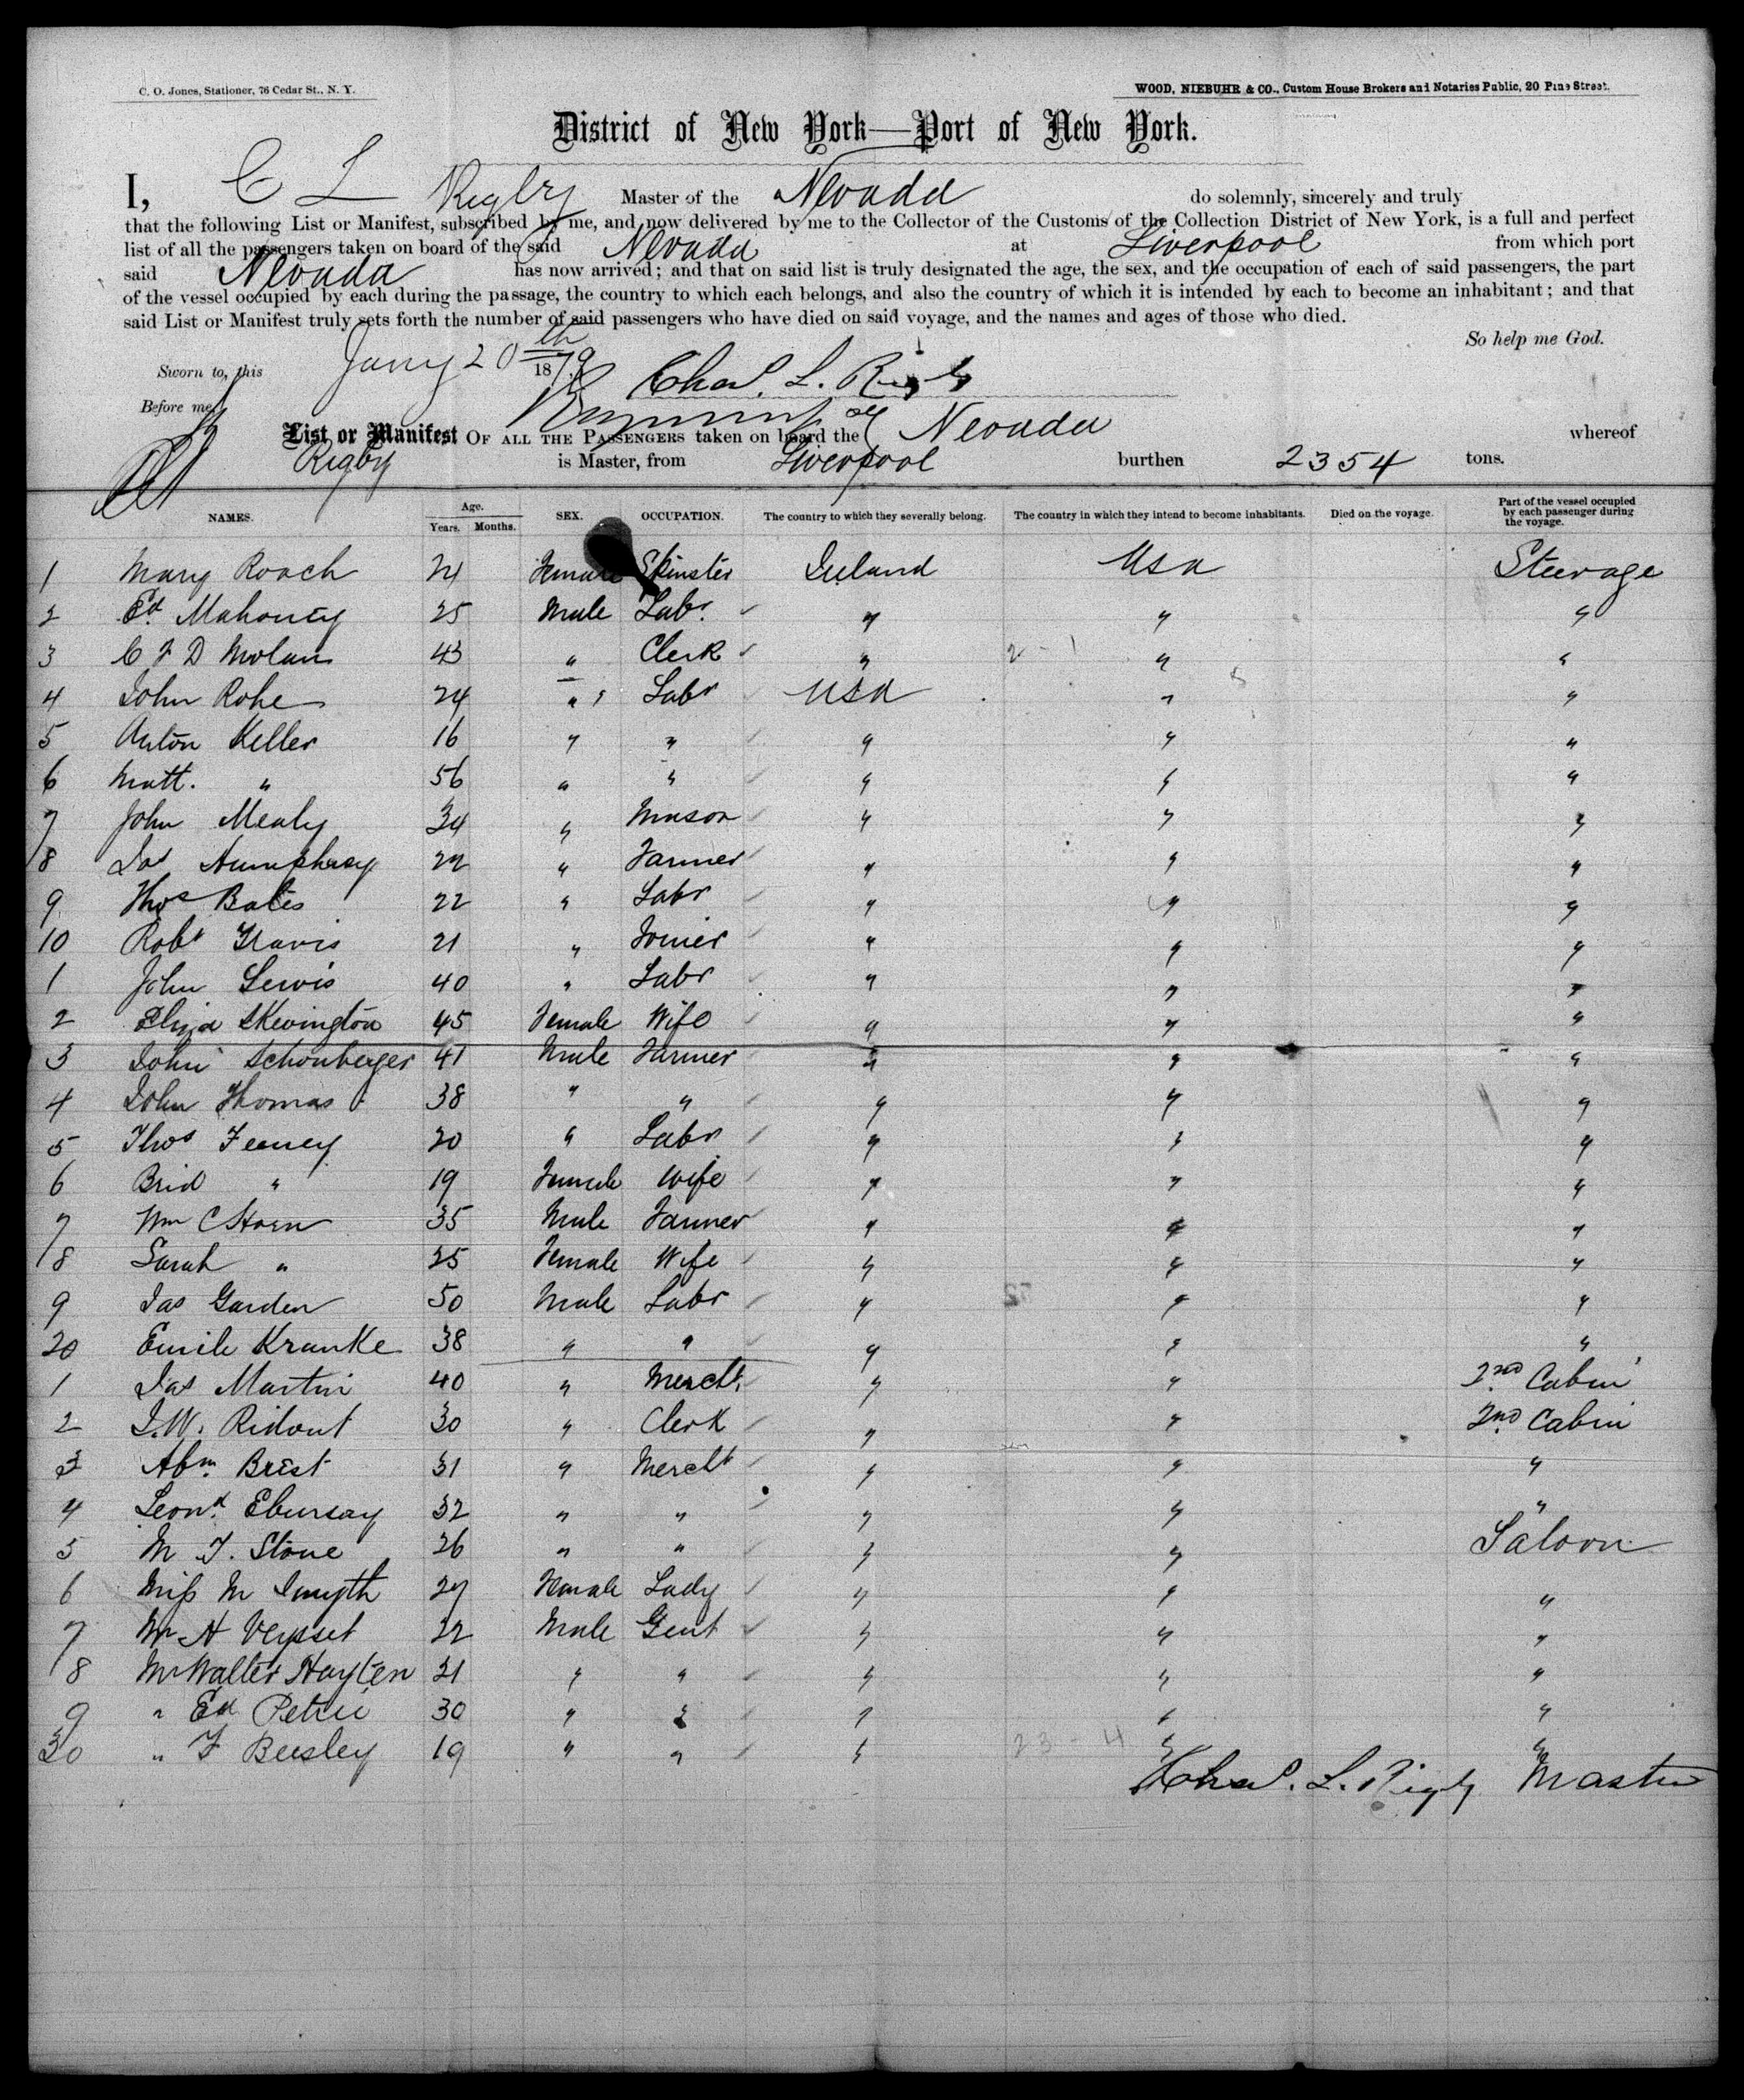 C. O. Jones, Stationer, 76 Cedar St., N. Y.
WOOD, NIEBUHR & CO., Custom House Brokers and Notaries Public, 20 Pine Street.
District of New York—Port of New York.
I, C L Rigby Master of the Nevada do solemnly, sincerely and truly
that the following List or Manifest, subscribed by me, and now delivered by me to the Collector of the Customs of the Collection District of New York, is a full and perfect
list of all the passengers taken on board of the said Nevada at Liverpool from which port
said Nevada has now arrived; and that on said list is truly designated the age, the sex, and the occupation of each of said passengers, the part
of the vessel occupied by each during the passage, the country to which each belongs, and also the country of which it is intended by each to become an inhabitant; and that
said List or Manifest truly sets forth the number of said passengers who have died on said voyage, and the names and ages of those who died.
So help me God.
Sworn to, this Jany 20th 1879
Chas. L. Rigby
Before me,
List or Manifest OF ALL THE PASSENGERS taken on board the Nevada whereof
Rigby is Master, from Liverpool burthen 2354 tons.
NAMES. Age. Years. Months. SEX. OCCUPATION. The country to which they severally belong. The country in which they intend to become inhabitants. Died on the voyage. Part of the vessel occupied by each passenger during the voyage.
1 Mary Roach 24 Female Spinster Ireland Usa Steerage
2 Ed Mahoney 25 Male Labr. " " "
3 C J D Molan 43 " Clerk " " "
4 John Rohe 24 " Labr USA " "
5 Anton Keller 16 " " " " "
6 Matt. " 56 " " " " "
7 John Mealy 34 " Mason " " "
8 Jas Humphrey 22 " Farmer " " "
9 Thos Bates 22 " Labr " " "
10 Robt Travis 21 " Joiner " " "
1 John Lewis 40 " Labr " " "
2 Eliza Skevington 45 Female Wife " " "
3 John Schonberger 41 Male Farmer " " "
4 John Thomas 38 " " " " "
5 Thos Feeney 20 " Labr " " "
6 Brid " 19 Female Wife " " "
7 Wm C Horn 35 Male Farmer " " "
8 Sarah " 25 Female Wife " " "
9 Jas Garden 50 Male Labr " " "
20 Emile Kranke 38 " " " " "
1 Jas Martin 40 " Mercht. " " 2nd Cabin
2 J. W. Ridout 30 " Clerk " " 2nd Cabin
3 Abm. Brest 31 " Mercht " " "
4 Leond. Ebursay 32 " " " " "
5 M J. Stone 26 " " " " Saloon
6 Miss M Smyth 27 Female Lady " " "
7 Mr H Veysset 22 Male Gent " " "
8 Mr Walter Hayten 21 " " " " "
9 " Ed Petrie 30 " " " " "
30 " F Beesley 19 " " " " "
Chas. L. Rigby Master